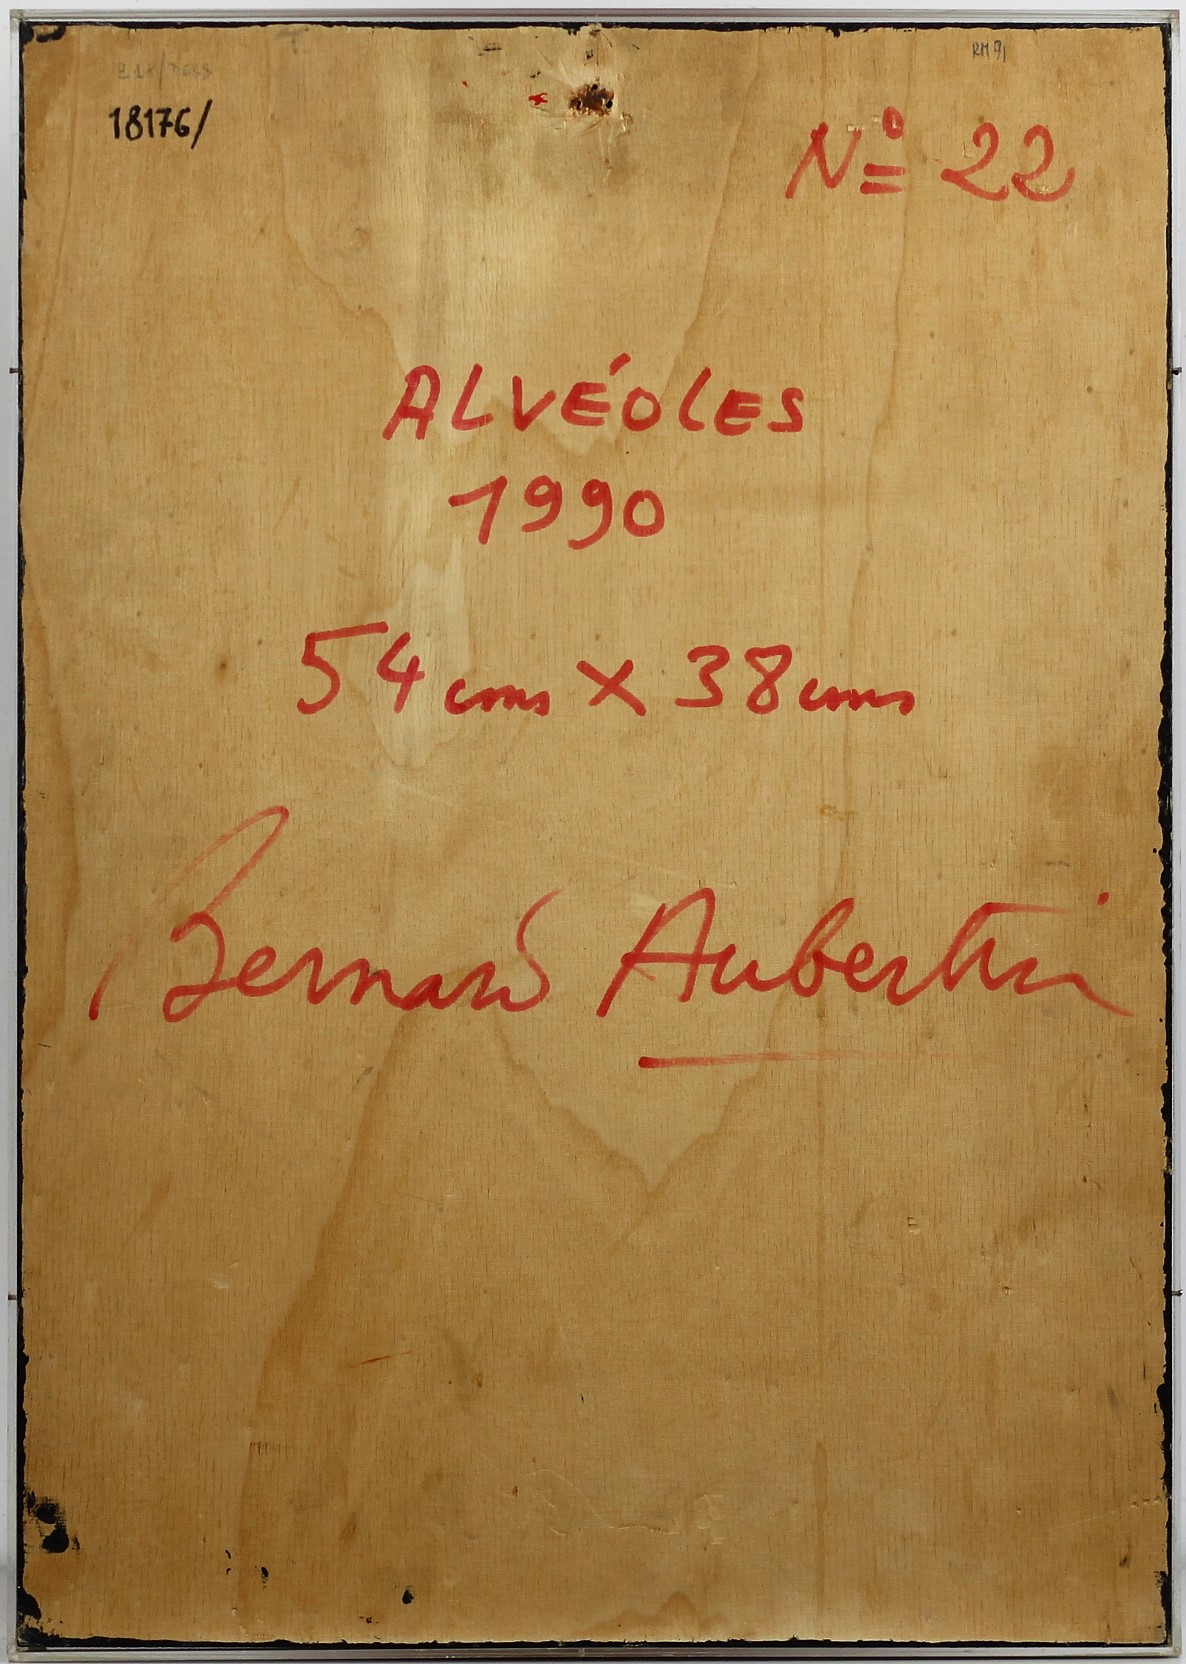 RM 91
18176/
Nº 22
ALVÉOLES
1990
54 cms x 38 cms
Bernard Aubertin